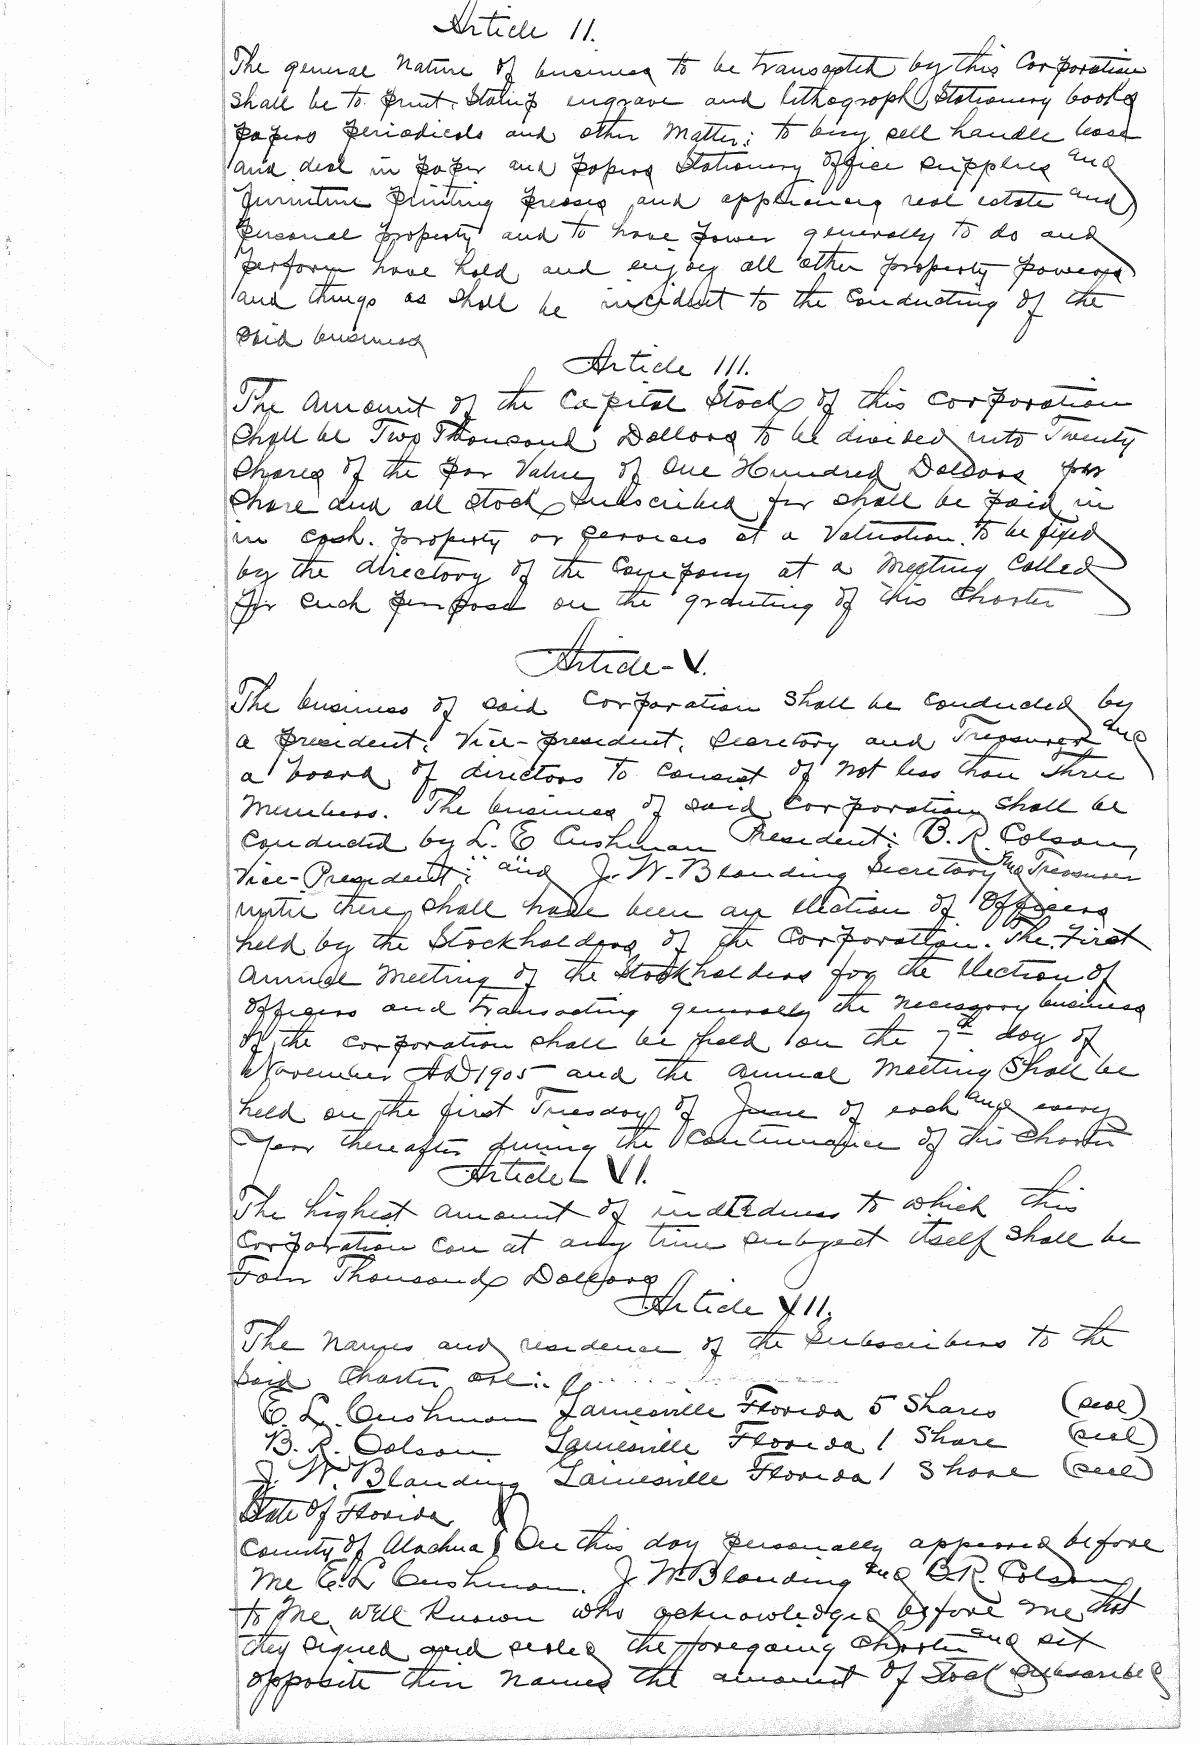 Article II.
The general nature of business to be transacted by this Corporation
shall be to print, Stamp engrave and lithograph Stationery books
papers periodicals and other matter; to buy sell handle lease
and deal in paper and papers Stationery office supplies and
furniture printing presses and appliances real estate and
personal property and to have power generally to do and
perform have hold and enjoy all other property powers
and things as shall be incident to the Conducting of the
said business
Article III.
The Amount of the Capital Stock of this Corporation
shall be Two Thousand Dollars to be divided into Twenty
Shares of the par Value of One Hundred Dollars per
Share and all stock subscribed for shall be paid in
in cash. property or services at a Valuation to be fixed
by the directory of the Company at a Meeting Called
for such purpose on the granting of this Charter
Article-V.
The business of said Corporation shall be conducted by
a president; Vice-president, Secretary and Treasurer and
a board of directors to consist of not less than Three
Members. The business of said Corporation shall be
conducted by L. E Cushman President; B. R. Colson,
Vice-President; "and J. W. Blanding Secretary and Treasurer
until there shall have been an election of Officers
held by the Stockholders of the Corporation. The First
annual Meeting of the Stockholders for the Election of
officers and transacting generally the necessary business
of the corporation shall be held on the 7th day of
November AD 1905 and the annual Meeting Shall be
held on the first Tuesday of June of each and every
Year thereafter during the Continuance of this Charter
Article VI.
The highest amount of indtedness to which this
Corporation can at any time subject itself shall be
Four Thousand Dollars
Article VII.
The names and residence of the Subscribers to the
said Charter are:
E. L. Cushman Gainesville Florida 5 Shares (seal)
B. R. Colson Gainesville Florida 1 Share (seal)
J. W. Blanding Gainesville Florida 1 Share (seal)
State of Florida
County of Alachua } On this day personally appeared before
me E. L Cushman. J W. Blanding and B.R. Colson
to Me, well known who acknowledged before me that
they signed and sealed the foregoing charter and set
opposite their names the amount of Stock subscribed